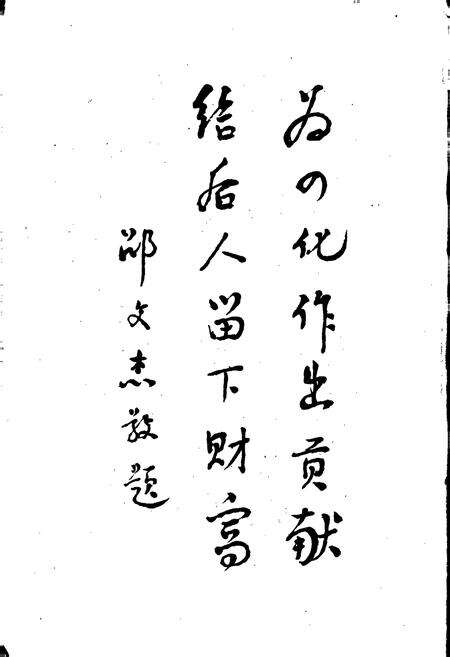 为四化作出贡献
给后人留下财富
邵文杰敬题